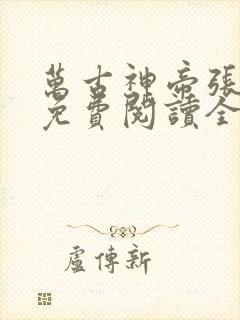 萬古神帝張
免費閱讀全
盧傳新